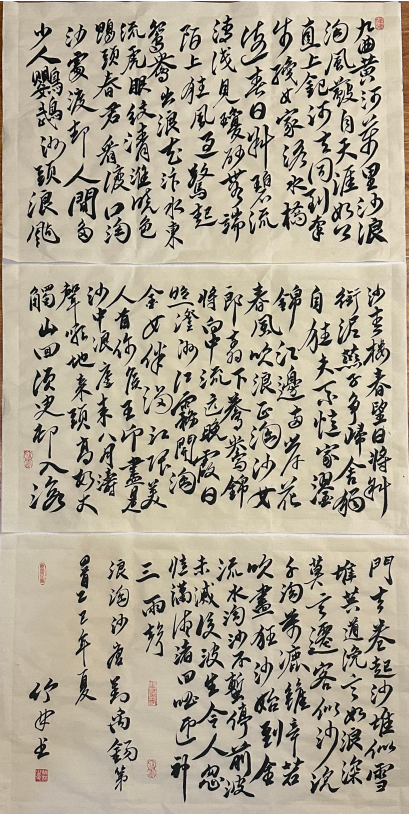 九曲黄河萬里沙浪
淘風簸自天涯如今
直上銀河去同到牽
牛織女家洛水橋
邊春日斜碧流
清淺見瓊砂無端
陌上狂風互驚起
鴛鴦出浪花汴水東
流虎眼紋清淮曉色
鴨頭春君看渡口淘
沙處渡却人間多
少人鸚鵡洲頭浪颭
沙青樓春望日將斜
銜泥燕子争歸舍獨
自狂夫不憶家濯
錦江邊兩岸花
春風吹浪正淘沙女
郎剪下鴛鴦錦
將向中流匹晚霞日
照澄洲江霧開淘
金女伴滿江隈美
人首飾侯王印盡是
沙中浪底來八月濤
聲吼地來頭高數丈
觸山回須臾却入海
門去卷起沙堆似雪
堆莫道讒言如浪深
莫言遷客似沙沉
千淘萬漉雖辛苦
吹盡狂沙始到金
流水淘沙不暫停前波
未滅後波生令人忽
憶瀟湘渚回唱迎神
三兩聲
浪淘沙唐劉禹錫第
乙巳年夏
書